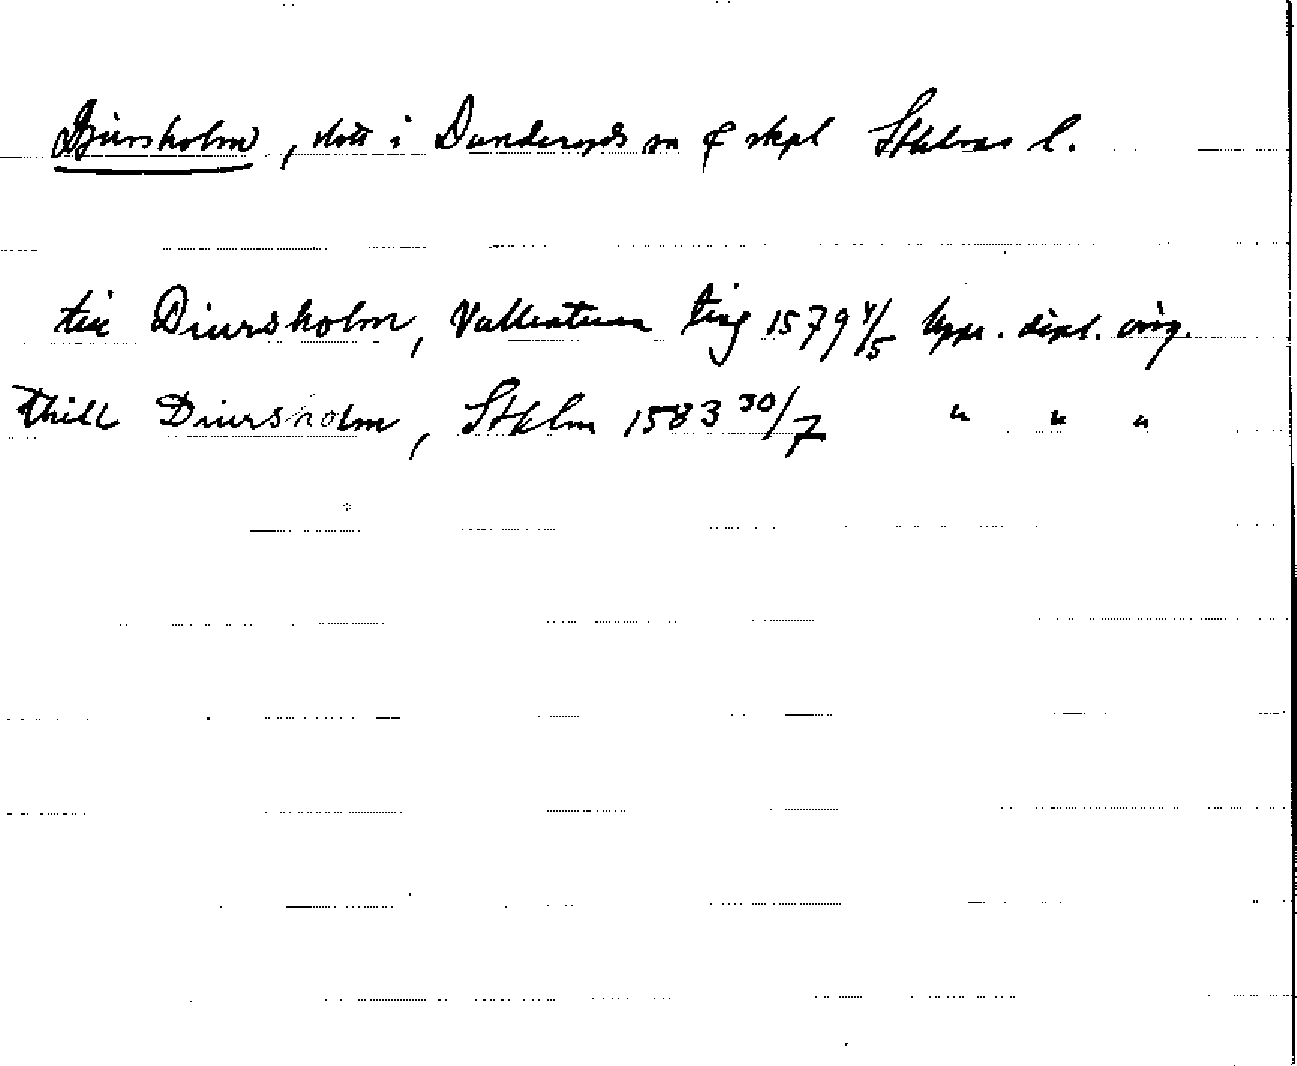 Djursholm, slott i Danderyds sn & skpl Sthlms l.
till Diursholm, Vallentuna ting 1579 4/5 Upps. dipl. orig.
thill Diursholm, Sthlm 1583 30/7 " " "